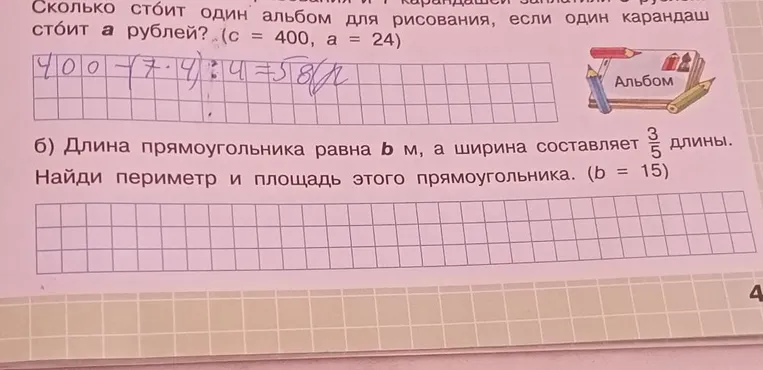 и 7 карандашей заплатили
Сколько стоит один альбом для рисования, если один карандаш
стоит а рублей? (c = 400, a = 24)
400-(7·4):4=58(р
Альбом
б) Длина прямоугольника равна b м, а ширина составляет 3/5 длины.
Найди периметр и площадь этого прямоугольника. (b = 15)
4